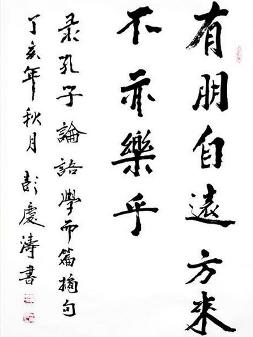 有朋自遠方来
不亦樂乎
录孔子論語學而篇摘句
丁亥年秋月彭慶濤書